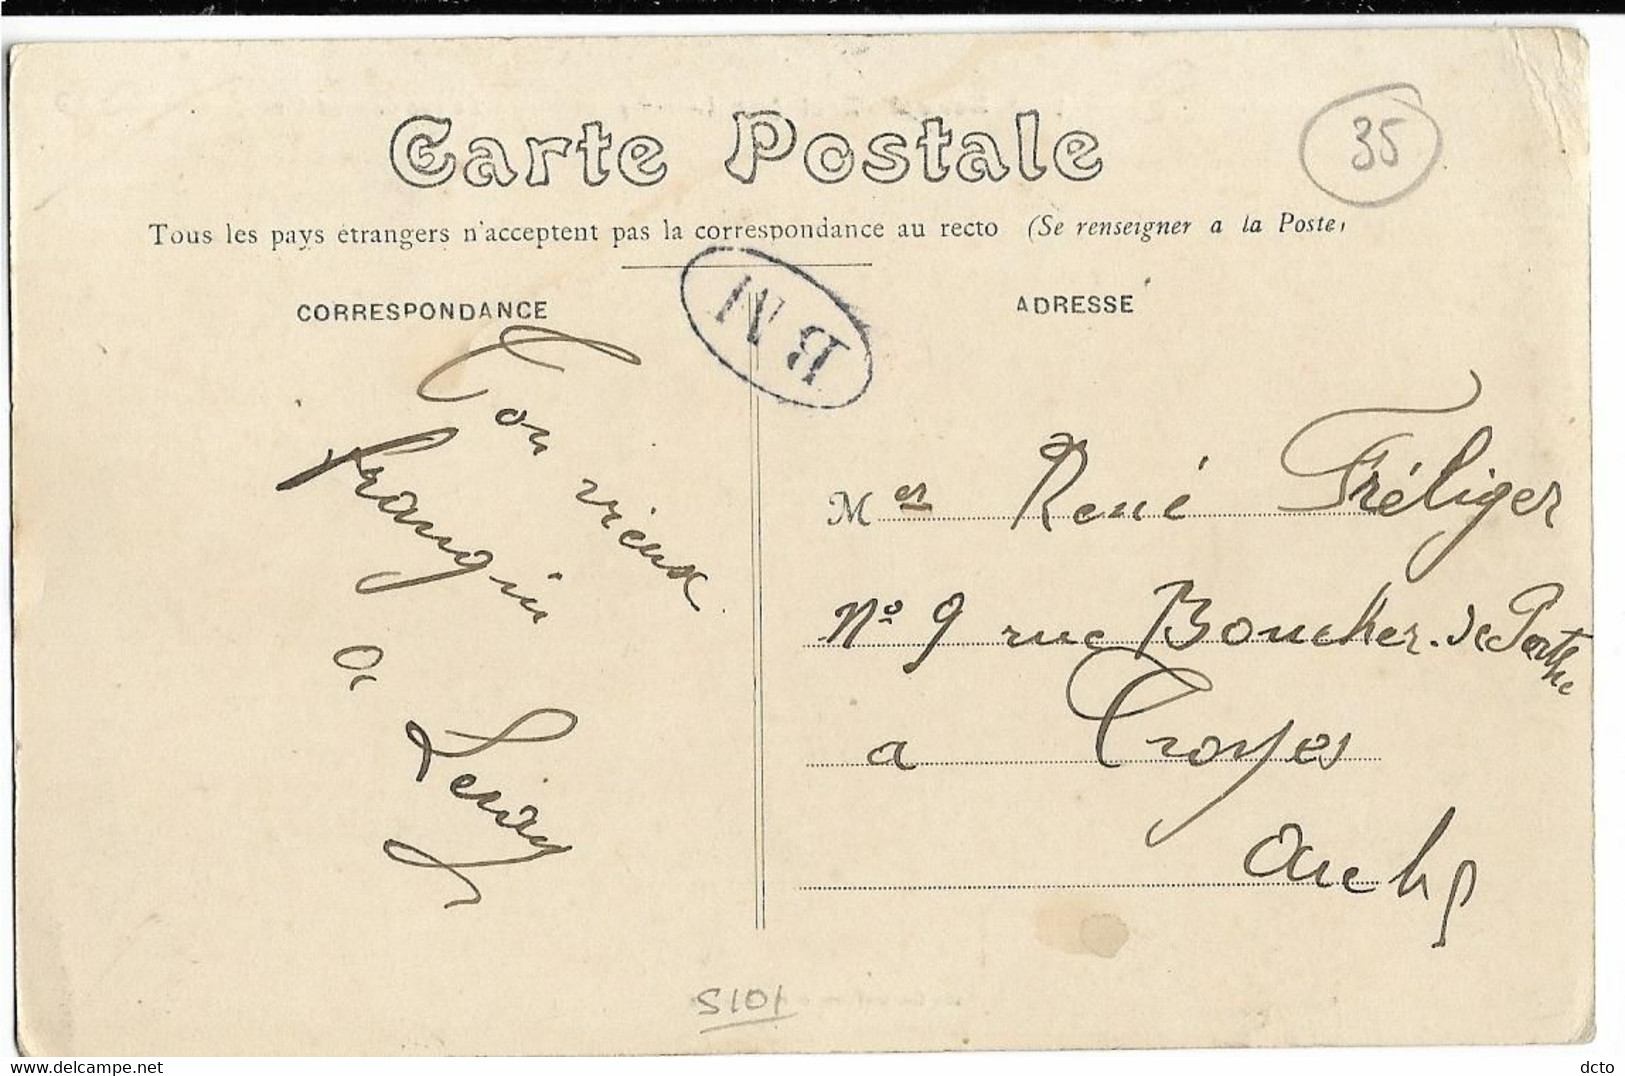 Carte Postale
35
Tous les pays étrangers n'acceptent pas la correspondance au recto (Se renseigner a la Poste)
BM
CORRESPONDANCE
ADRESSE
Ton vieux
frangin
a
Mer René Fréliger
No 9 rue Boucher de Perthe
a Troyes
Aube
1015
www.delcampe.net
dcto